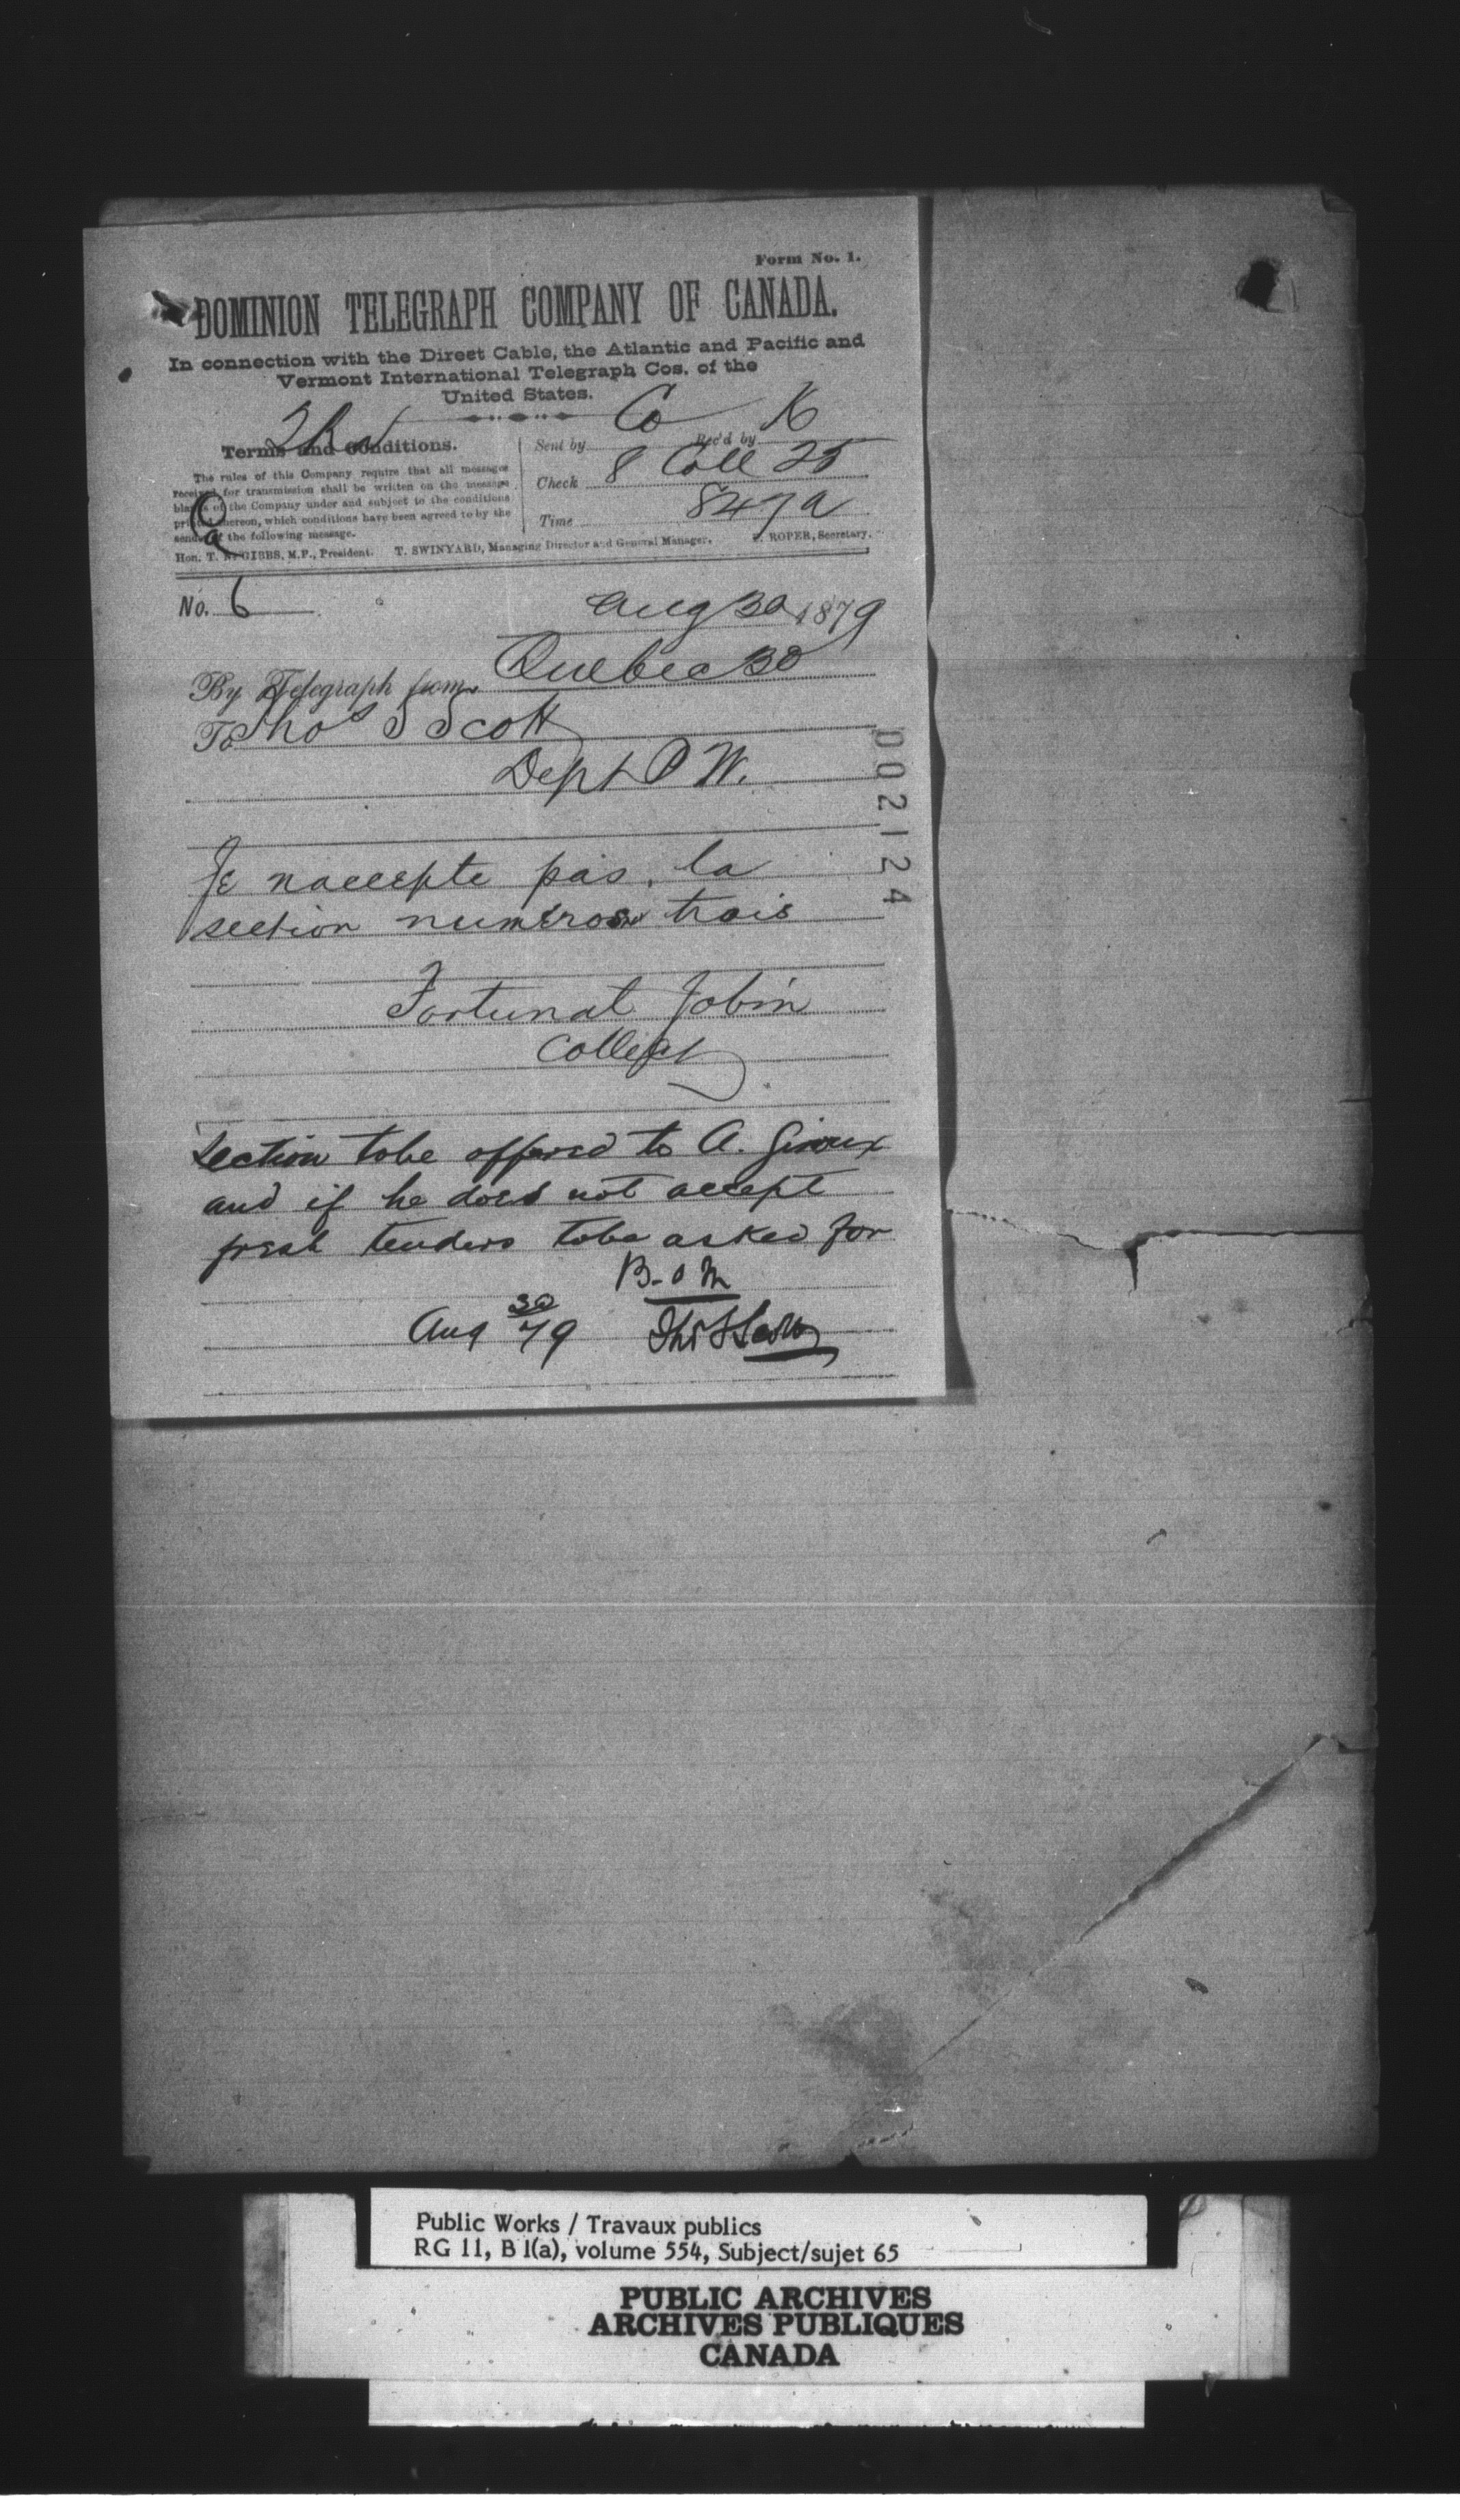 Form No. 1.
DOMINION TELEGRAPH COMPANY OF CANADA.
In connection with the Direct Cable, the Atlantic and Pacific and
Vermont International Telegraph Cos. of the
United States.
Terms and Conditions.
The rules of this Company require that all messages
received for transmission shall be written on the message
blanks of the Company under and subject to the conditions
printed thereon, which conditions have been agreed to by the
sender of the following message.
Sent by Co Rec'd by K
Check 8 Coll 25
Time 847a
Hon. T. N. GIBBS, M.P., President. T. SWINYARD, Managing Director and General Manager. F. ROPER, Secretary.
No. 6
Aug 30 1879
By Telegraph from Quebec 30
To Thos S Scott
Dept P W.
002124
Je naccepte pas la
section numero trois
Fortunat Jobin
Collect
Section to be offered to A. Giroux
and if he does not accept
fresh tenders to be asked for
B-o M
Aug 30 79 Thos S Scott
Public Works / Travaux publics
RG 11, B 1(a), volume 554, Subject/sujet 65
PUBLIC ARCHIVES
ARCHIVES PUBLIQUES
CANADA